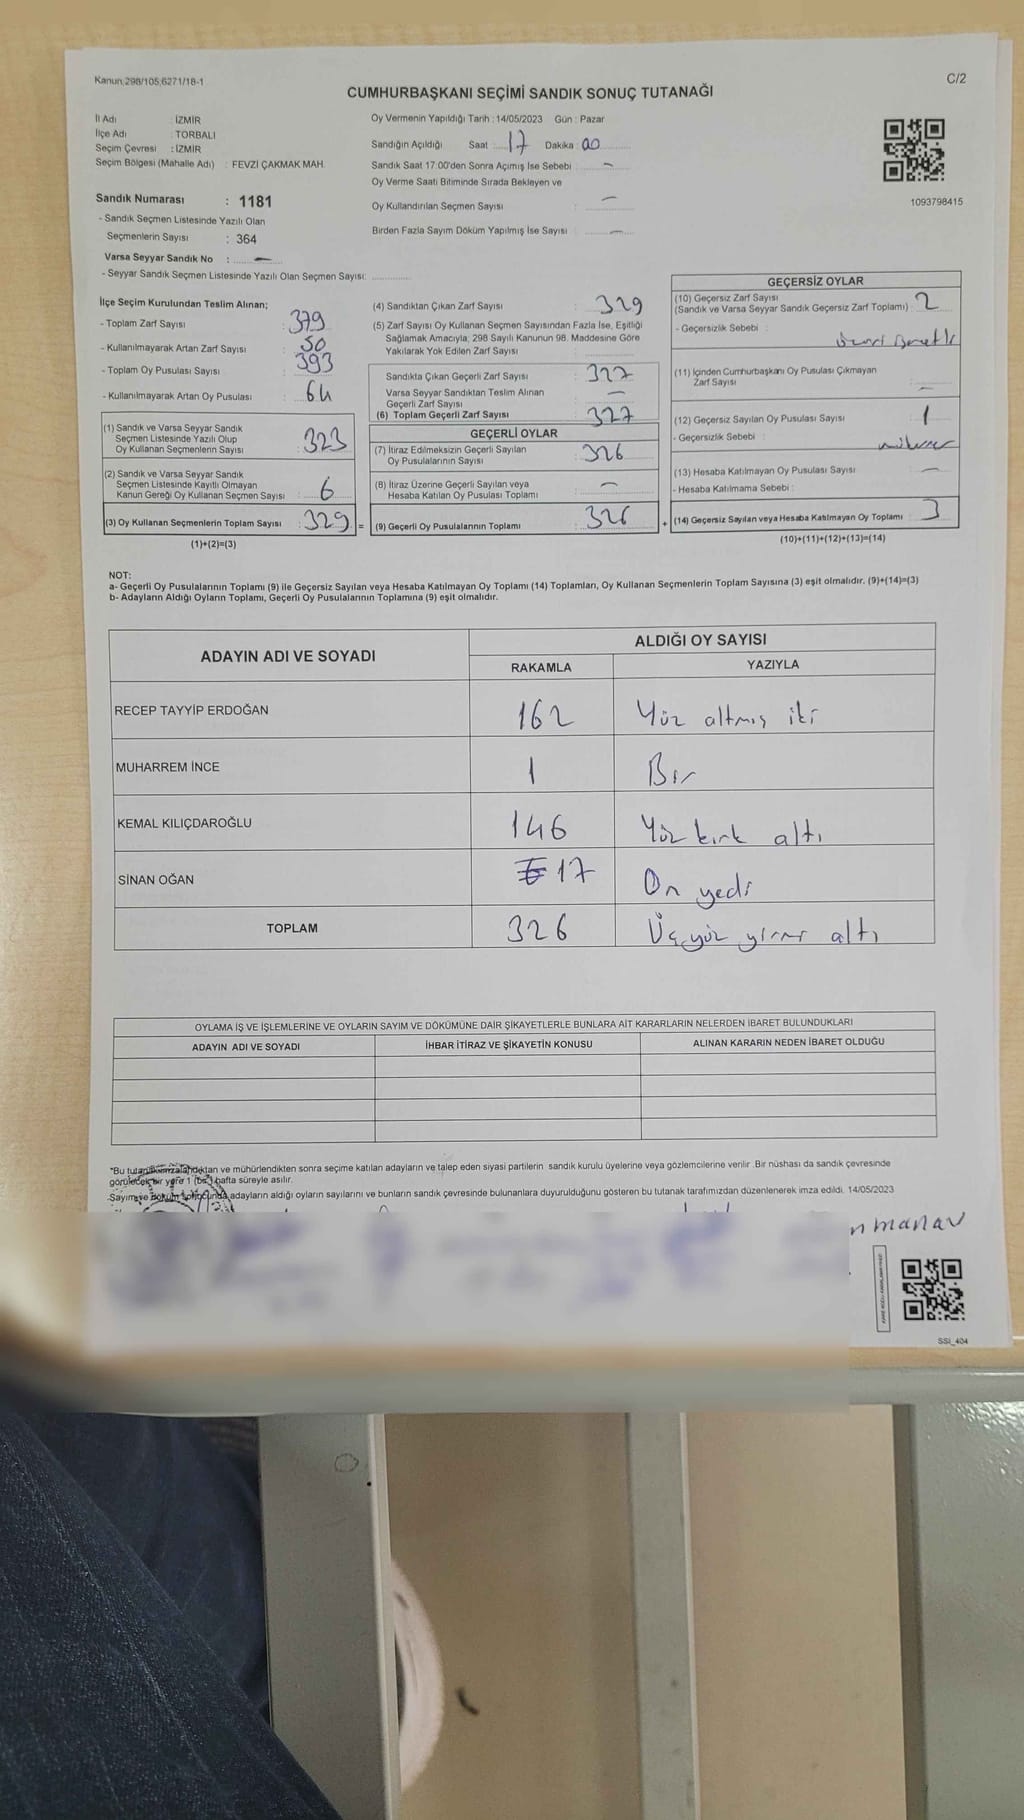 Kanun.298/105,6271/18-1
C/2
CUMHURBAŞKANI SEÇİMİ SANDIK SONUÇ TUTANAĞI
İl Adı : İZMİR
İlçe Adı : TORBALI
Seçim Çevresi : İZMİR
Seçim Bölgesi (Mahalle Adı) : FEVZİ ÇAKMAK MAH.
Sandık Numarası : 1181
- Sandık Seçmen Listesinde Yazılı Olan
Seçmenlerin Sayısı : 364
Varsa Seyyar Sandık No : —
- Seyyar Sandık Seçmen Listesinde Yazılı Olan Seçmen Sayısı:
Oy Vermenin Yapıldığı Tarih : 14/05/2023 Gün : Pazar
Sandığın Açıldığı Saat : 17 Dakika : 00
Sandık Saat 17:00'den Sonra Açımış İse Sebebi : —
Oy Verme Saati Bitiminde Sırada Bekleyen ve
Oy Kullandırılan Seçmen Sayısı : —
Birden Fazla Sayım Döküm Yapılmış İse Sayısı : —
1093798415
İlçe Seçim Kurulundan Teslim Alınan;
- Toplam Zarf Sayısı : 379
- Kullanılmayarak Artan Zarf Sayısı : 50
- Toplam Oy Pusulası Sayısı : 393
- Kullanılmayarak Artan Oy Pusulası : 64
(1) Sandık ve Varsa Seyyar Sandık
Seçmen Listesinde Yazılı Olup
Oy Kullanan Seçmenlerin Sayısı : 323
(2) Sandık ve Varsa Seyyar Sandık
Seçmen Listesinde Kayıtlı Olmayan
Kanun Gereği Oy Kullanan Seçmen Sayısı : 6
(3) Oy Kullanan Seçmenlerin Toplam Sayısı : 329 =
(1)+(2)=(3)
(4) Sandıktan Çıkan Zarf Sayısı : 329
(5) Zarf Sayısı Oy Kullanan Seçmen Sayısından Fazla İse, Eşitliği
Sağlamak Amacıyla; 298 Sayılı Kanunun 98. Maddesine Göre
Yakılarak Yok Edilen Zarf Sayısı :
Sandıkta Çıkan Geçerli Zarf Sayısı : 327
Varsa Seyyar Sandıktan Teslim Alınan
Geçerli Zarf Sayısı : —
(6) Toplam Geçerli Zarf Sayısı : 327
GEÇERLİ OYLAR
(7) İtiraz Edilmeksizin Geçerli Sayılan
Oy Pusulalarının Sayısı : 326
(8) İtiraz Üzerine Geçerli Sayılan veya
Hesaba Katılan Oy Pusulası Toplamı : —
(9) Geçerli Oy Pusulalarının Toplamı : 326 +
GEÇERSİZ OYLAR
(10) Geçersiz Zarf Sayısı
(Sandık ve Varsa Seyyar Sandık Geçersiz Zarf Toplamı) : 2
- Geçersizlik Sebebi :
(11) İçinden Cumhurbaşkanı Oy Pusulası Çıkmayan
Zarf Sayısı : —
(12) Geçersiz Sayılan Oy Pusulası Sayısı : 1
- Geçersizlik Sebebi :
(13) Hesaba Katılmayan Oy Pusulası Sayısı : —
- Hesaba Katılmama Sebebi :
(14) Geçersiz Sayılan veya Hesaba Katılmayan Oy Toplamı : 3
(10)+(11)+(12)+(13)=(14)
NOT:
a- Geçerli Oy Pusulalarının Toplamı (9) ile Geçersiz Sayılan veya Hesaba Katılmayan Oy Toplamı (14) Toplamları, Oy Kullanan Seçmenlerin Toplam Sayısına (3) eşit olmalıdır. (9)+(14)=(3)
b- Adayların Aldığı Oyların Toplamı, Geçerli Oy Pusulalarının Toplamına (9) eşit olmalıdır.
ADAYIN ADI VE SOYADI
ALDIĞI OY SAYISI
RAKAMLA YAZIYLA
RECEP TAYYİP ERDOĞAN 162 Yüz altmış iki
MUHARREM İNCE 1 Bir
KEMAL KILIÇDAROĞLU 146 Yüz kırk altı
SİNAN OĞAN 17 On yedi
TOPLAM 326 Üç yüz yirmi altı
OYLAMA İŞ VE İŞLEMLERİNE VE OYLARIN SAYIM VE DÖKÜMÜNE DAİR ŞİKAYETLERLE BUNLARA AİT KARARLARIN NELERDEN İBARET BULUNDUKLARI
ADAYIN ADI VE SOYADI İHBAR İTİRAZ VE ŞİKAYETİN KONUSU ALINAN KARARIN NEDEN İBARET OLDUĞU
"Bu tutanak imzalandıktan ve mühürlendikten sonra seçime katılan adayların ve talep eden siyasi partilerin sandık kurulu üyelerine veya gözlemcilerine verilir. Bir nüshası da sandık çevresinde
görülecek bir yere 1 (bir) hafta süreyle asılır.
Sayım ve döküm sonucunda adayların aldığı oyların sayılarını ve bunların sandık çevresinde bulunanlara duyurulduğunu gösteren bu tutanak tarafımızdan düzenlenerek imza edildi. 14/05/2023
n manav
SSI_404